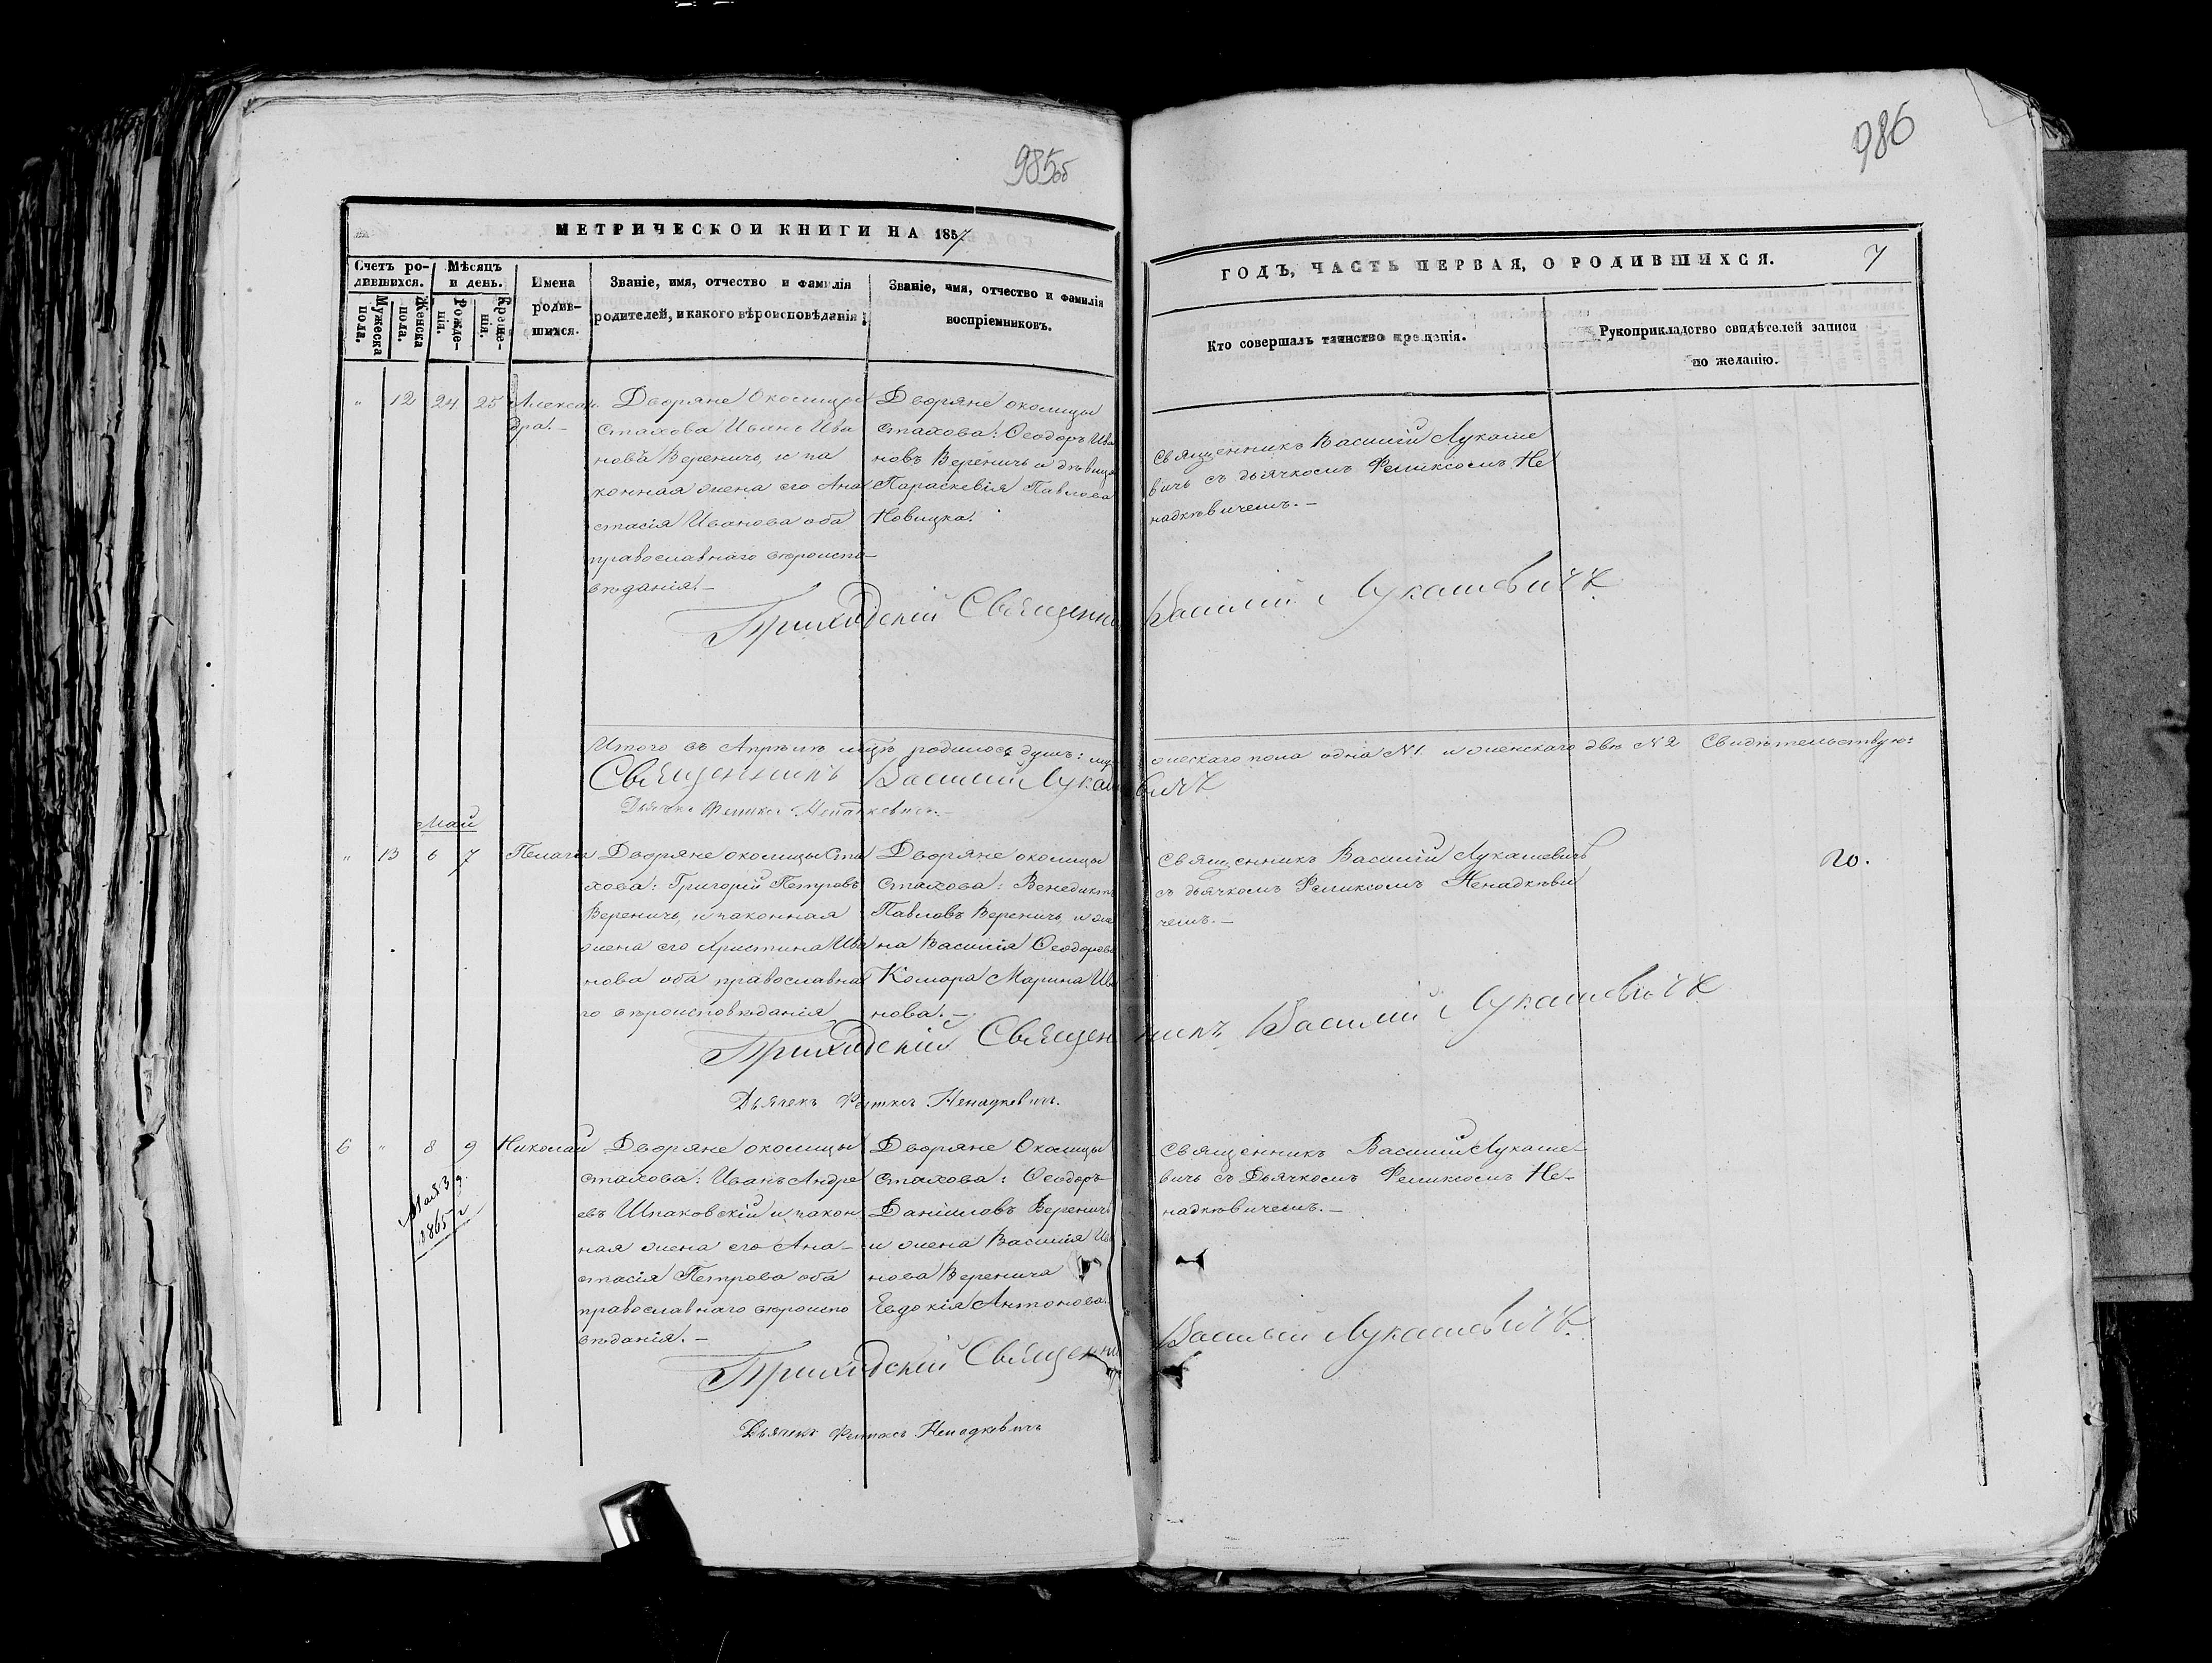 985об
986
МЕТРИЧЕСКОЙ КНИГИ НА 1857
ГОДЪ, ЧАСТЬ ПЕРВАЯ, О РОДИВШИХСЯ.
7
Счетъ ро-
дившихся.
Мужеска
пола.
Женска
пола.
Мѣсяцъ
и день.
Рожде-
нія.
Креще-
нія.
Имена
родив-
шихся.
Званіе, имя, отчество и фамилія
родителей, и какого вѣроисповѣданія
Званіе, имя, отчество и фамилія
воспріемниковъ.
Кто совершалъ таинство крещенія.
Рукоприкладство свидѣтелей записи
по желанію.
" 12 24 25
Алексан
дра.-
Дворяне Околицы
Стахова Иванъ Ива
новъ Вереничь, и за
конная жена его Ана
стасія Иванова оба
православнаго вѣроиспо-
вѣданія.-
Дворяне околицы
Стахова: Ѳеодоръ Ива
новъ Вереничь и дѣвица
Параскевія Павлова
Новицка.
Священникъ Василій Лукаше
вичь съ дьячкомъ Феликсомъ Не
надкѣвичемъ.-
Приходскій Священникъ Василій Лукашевичъ
Итого въ Апрѣлѣ мцѣ родилось душъ: му жескаго пола одна №1. и женскаго двѣ №2 Свидѣтельствую:
Священникъ Василій Лукашевичъ
Дьячекъ Феликсъ Ненадкевичъ.-
Май
" 13 6 7
Пелагея
Дворяне околицы Ста
хова: Григорій Петровъ
Вереничь, и законная
жена его Христина Ива
нова оба православна
го вѣроисповѣданія
Дворяне околицы
Стахова: Венедиктъ
Павловъ Вереничь, и же
на Василія Ѳеодорова
Комара Марина Ива
нова.-
Священникъ Василій Лукашевичь
съ дьячкомъ Феликсомъ Ненадкѣви
чемъ.-
Приходскій Священникъ Василій Лукашевичъ
Дьячекъ Феликсъ Ненадкевичъ.
6 " 8 9
Николай
Мая 3 д.
1865 г
Дворяне околицы
Стахова: Иванъ Андре
евъ Шпаковскій и закон
ная жена его Ана-
стасія Петрова оба
православнаго вѣроиспо
вѣданія.-
Дворяне Околицы
Стахова: Ѳеодоръ
Даніиловъ Вереничь
и жена Василія Ива
нова Веренича
Евдокія Антонова.
Священникъ Василій Лукаше-
вичь съ Дьячкомъ Феликсомъ Не-
надкѣвичемъ.-
Приходскій Священникъ Василій Лукашевичъ.
Дьячекъ Феликсъ Ненадкевичъ